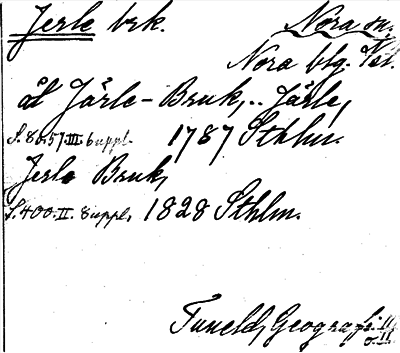 Jerle brk. Nora sn.
Nora blg. Vsl.
åt Järle-Bruk, .. Järle,
S. 86.57.III. Suppl. 1787 Sthlm.
Jerle Bruk,
S. 400.II. Suppl. 1828 Sthlm.
Tunelds Geografi